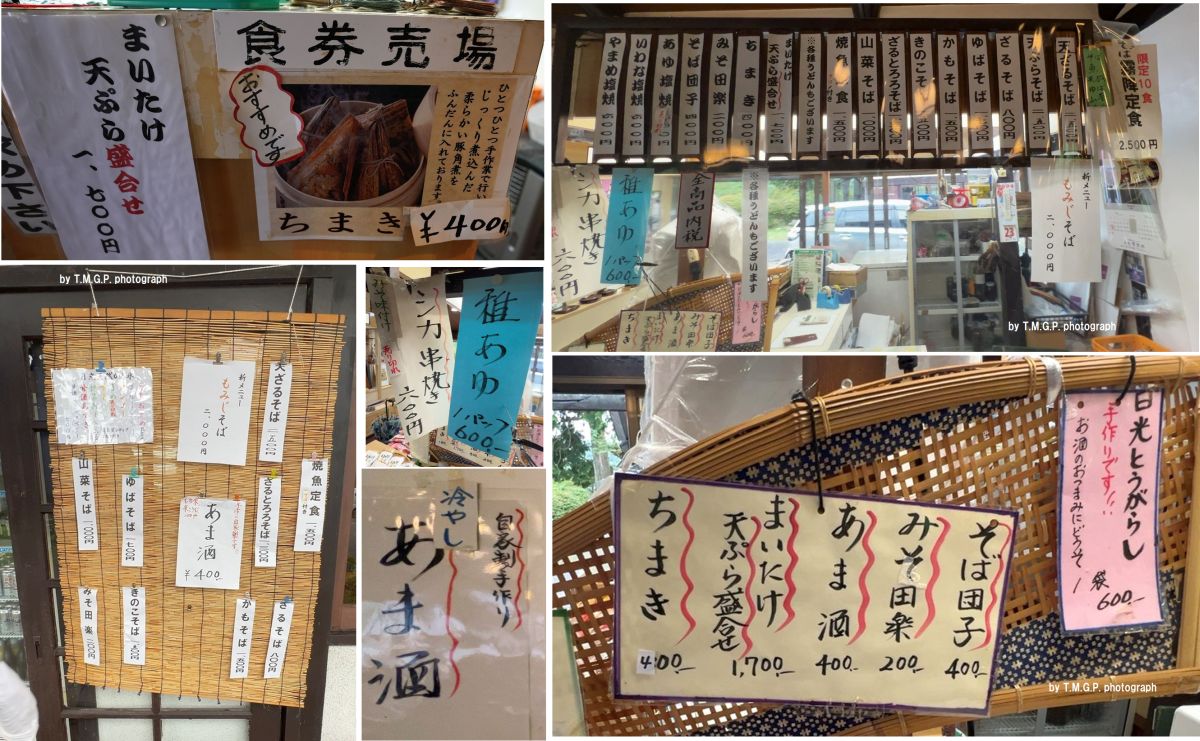 食券売場
おすすめです
ひとつひとつ手作業で行い
じっくり煮込んだ
柔らかい豚角煮を
ふんだんに入れております。
ちまき
¥400円
まいたけ
天ぷら盛合せ
一、七〇〇円
下さい
限定10食
限定食
2.500円
天ざるそば
天ぷらそば
ざるそば 八〇〇円
ゆばそば
かもそば
きのこそば
ざるとろろそば
山菜そば
焼魚定食
※各種うどんもございます
まいたけ
天ぷら盛合せ
ちまき
みそ田楽 二〇〇円
そば団子 四〇〇円
あゆ塩焼
いわな塩焼
やまめ塩焼
新メニュー
もみじそば
二、〇〇〇円
23
※各種うどんもございます
全商品内税
稚あゆ
1パック
600-
シカ串焼き
六〇〇円
そば団子
みそ田楽
ちまき
by T.M.G.P. photograph
by T.M.G.P. photograph
天ざるそば
新メニュー
もみじそば
二、〇〇〇円
焼魚定食
ざるとろろそば
あま酒
¥400-
ゆばそば
山菜そば
ざるそば 八〇〇円
かもそば
きのこそば
みそ田楽 二〇〇円
稚あゆ
1パック
600-
シカ串焼き
六〇〇円
自家製手作り
冷やし
あま酒
日光とうがらし
手作りです!!
お酒のおつまみにどうぞ
1袋
600-
そば団子 400-
みそ田楽 200-
あま酒 400-
まいたけ
天ぷら盛合せ 1,700-
ちまき 400-
by T.M.G.P. photograph